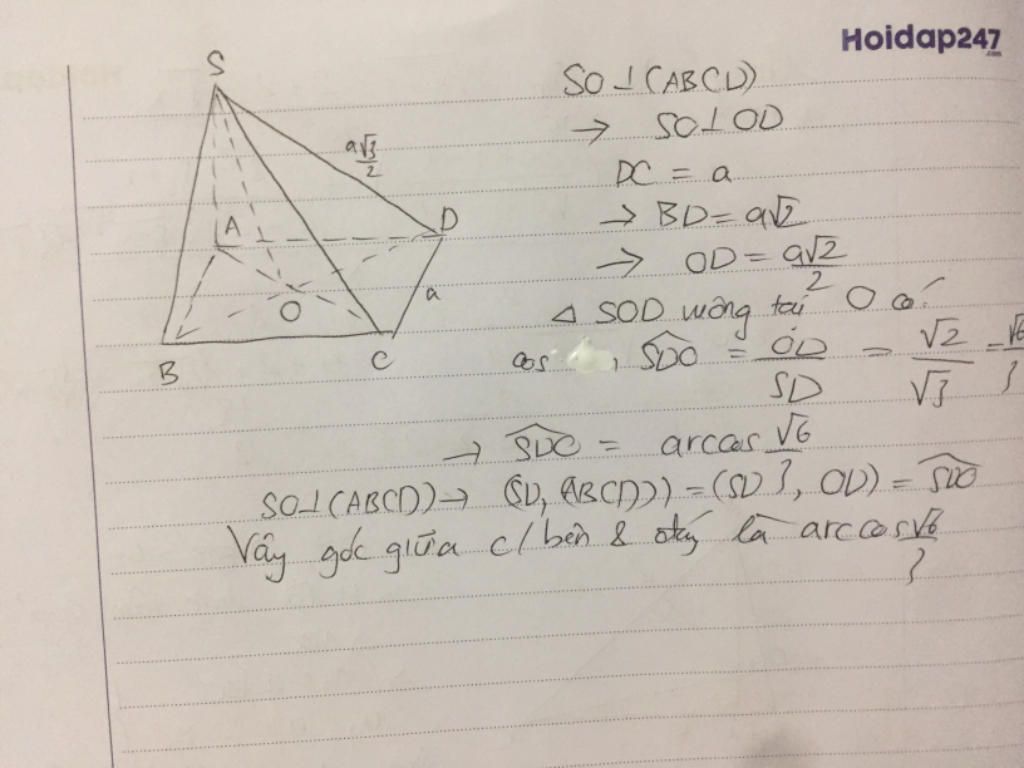 Hoidap247
.com
S
a√3/2
A
D
a
O
B
C
SO⊥(ABCD)
→ SO⊥OD
DC = a
→ BD = a√2
→ OD = a√2/2
△ SOD vuông tại O có:
cos SDO = OD/SD = √2/√3 = √6/3
→ SDO = arccos √6/3
SO⊥(ABCD) → (SD, (ABCD)) = (SD, OD) = SDO
Vậy góc giữa c/bên & đáy là arccos √6/3